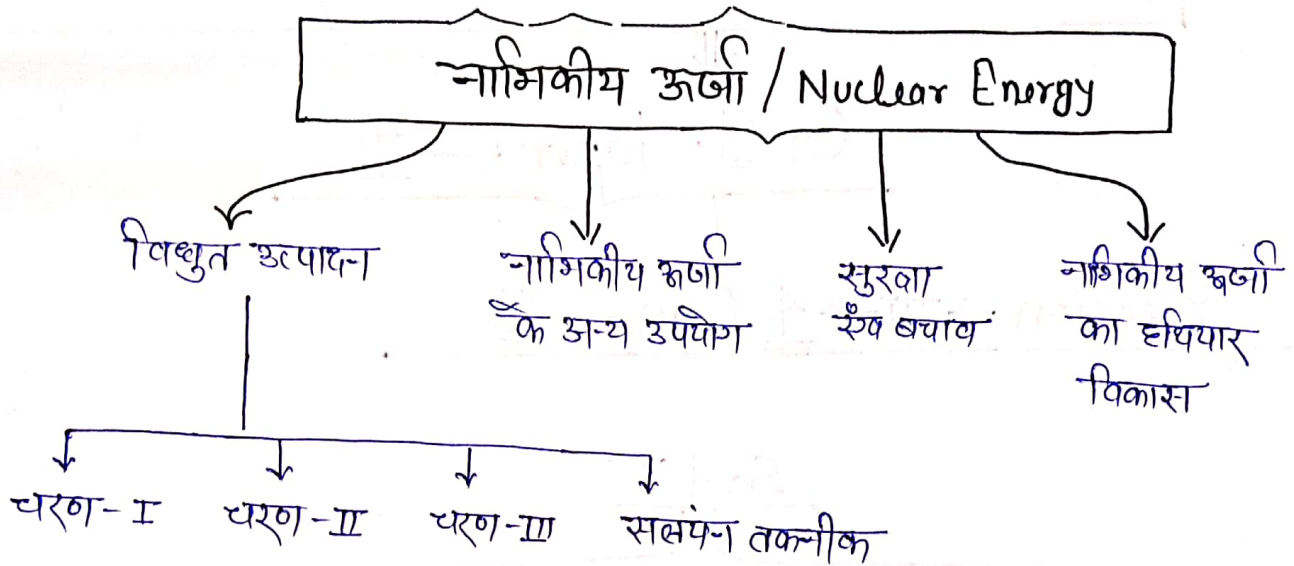 नाभिकीय ऊर्जा / Nuclear Energy
विधुत उत्पादन
नाभिकीय ऊर्जा
के अन्य उपयोग
सुरक्षा
एंव बचाव
नाभिकीय ऊर्जा
का हथियार
विकास
चरण - I
चरण - II
चरण - III
सलयंन तकनीक